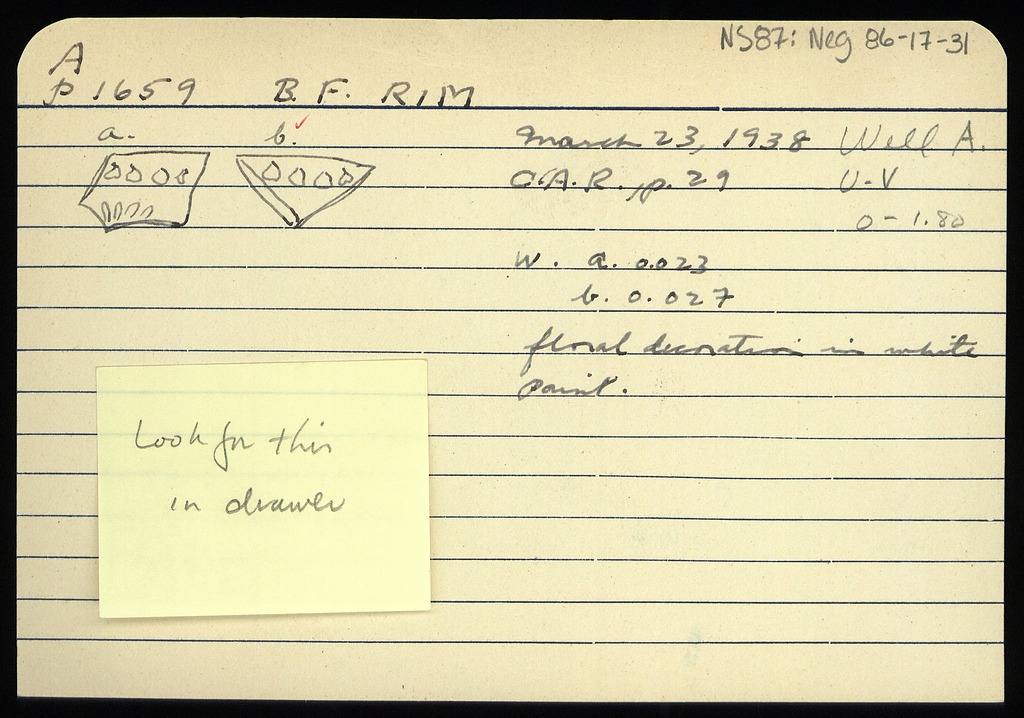 NS87: Neg 86-17-31
A
P 1659 B. F. RIM
a. b.
March 23, 1938 Well A.
C.A.R., p. 29 U-V
0-1.80
W. a. 0.023
b. 0.027
floral decoration in white
paint.
Look for this
in drawer